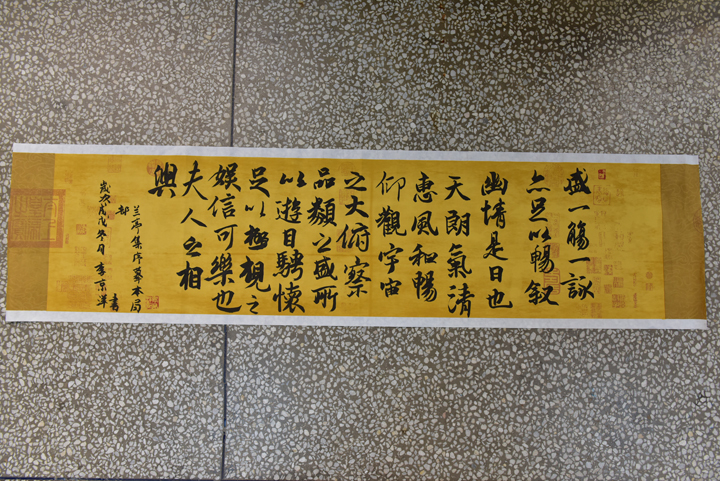 盛一觴一詠
亦足以暢叙
幽情是日也
天朗氣清
惠風和暢
仰觀宇宙
之大俯察
品類之盛所
以遊目騁懷
足以極視之
娛信可樂也
夫人之相
與
兰亭集序摹本局
部
歲次戊戌冬月李京洋書